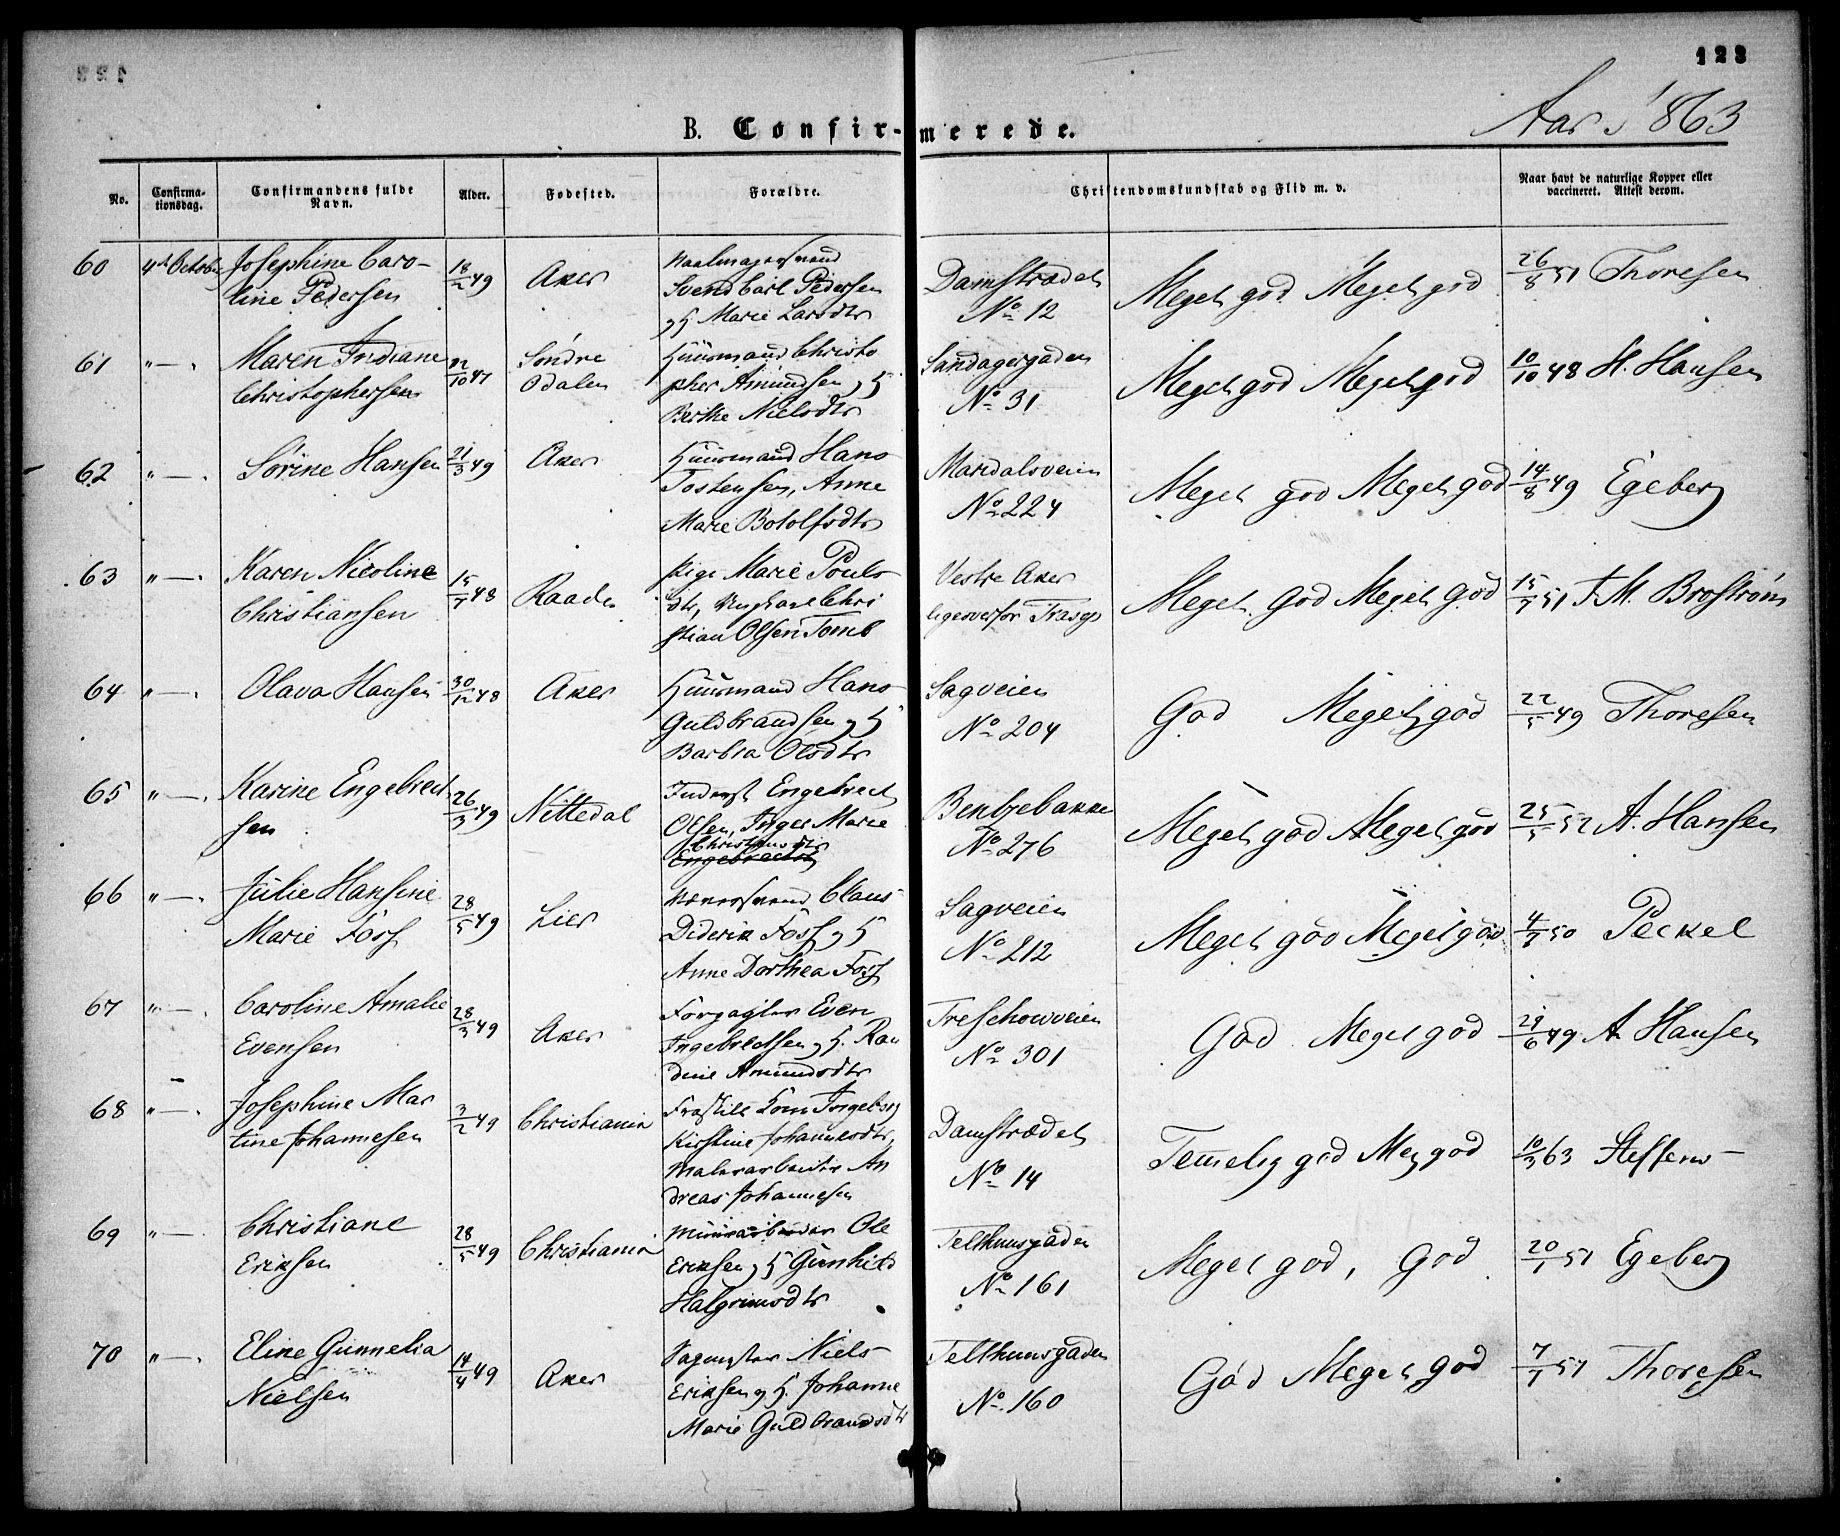 123
Aar 1863
B. Confir-merede.
No.
Confirma-
tionsdag.
Confirmandens fulde
Navn.
Alder.
Fødested.
Forældre.
Christendomskundskab og Flid m. v.
Naar havt de naturlige Kopper eller
vaccineret. Attest derom.
60 4de Octobr Josephine Caro- 18/2 49 Aker
line Pedersen
Svend Carl Pedersen
og H Marie Larsdtr
Damstrædet
No 12
Meget god Meget god 26/8 51 Thoresen
61 "—. Maren Indiane 10 47 Søndre
Christophersen Odalen
Huusmand Christo
pher Amundsen og H
Berthe Nielsdtr
Sandagergaden
No 31
Meget god Meget god 10/10 48 H. Hansen
62 "—. Sørine Hansen 21/3 49 Aker
Huusmand Hans
Tostensen, Anne
Marie Botolfsdtr
Maridalsveien
No 224
Meget god Meget god 14/8 49 Egeberg
63 "—. Karen Nicoline 15/7 48 Raade
Christiansen
Pige Marie Pouls
dtr, Ungkarl Chri
stian Olsen Tomb
Vestre Aker
ligeoverfor
Meget god Meget god 15/7 51 F. M. Brostrøm
64 "—. Olava Hansen 30/12 48 Aker
Huusmand Hans
Guldbrandsen og H
Barbra Olsdtr
Sagveien
No 204
God Meget god 22/5 49 Thoresen
65 "—. Karine Engebret 26/3 49 Nittedal
sen
Inderst Engebret
Olsen, Inger Marie
Christensdtr
Bentzebakke
No 276
Meget god Meget god 25/5 52 A. Hansen
66 "—. Julie Hansine 28/5 49 Lier
Marie Foss
Claus
Diderik Foss og H
Anne Dorthea Foss
Sagveien
No 212
Meget god Meget god 4/7 50 Peckel
67 "—. Caroline Amalie 28/3 49 Aker
Evensen
Forpagter Even
Ingebretsen og H. Ran
dine Amundsdtr
Treschowveien
No 301
God Meget god 29/6 49 A Hansen
68 "—. Josephine Mar 3/2 49 Christiania
tine Johannesen
Fraskilt Kone Ingeborg
Kirstine Johannesdtr,
Malerarbeider An
dreas Johannesen
Damstrædet
No 14
Temelig god Meg god 10/3 63 Steffens
69 "—. Christiane 28/5 49 Christiania
Eriksen
Muurarbeider Ole
Eriksen og H Gunhild
Halgrimsdtr
Telthuusgaden
No 161
Meget god, God 20/1 51 Egeberg
70 "—. Eline Gunnelia 14/4 49 Aker
Nielsen
Niels
Eriksen og H. Johanne
Marie Guldbrandsdtr
Telthuusgaden
No 160
God Meget god 7/7 51 Thoresen